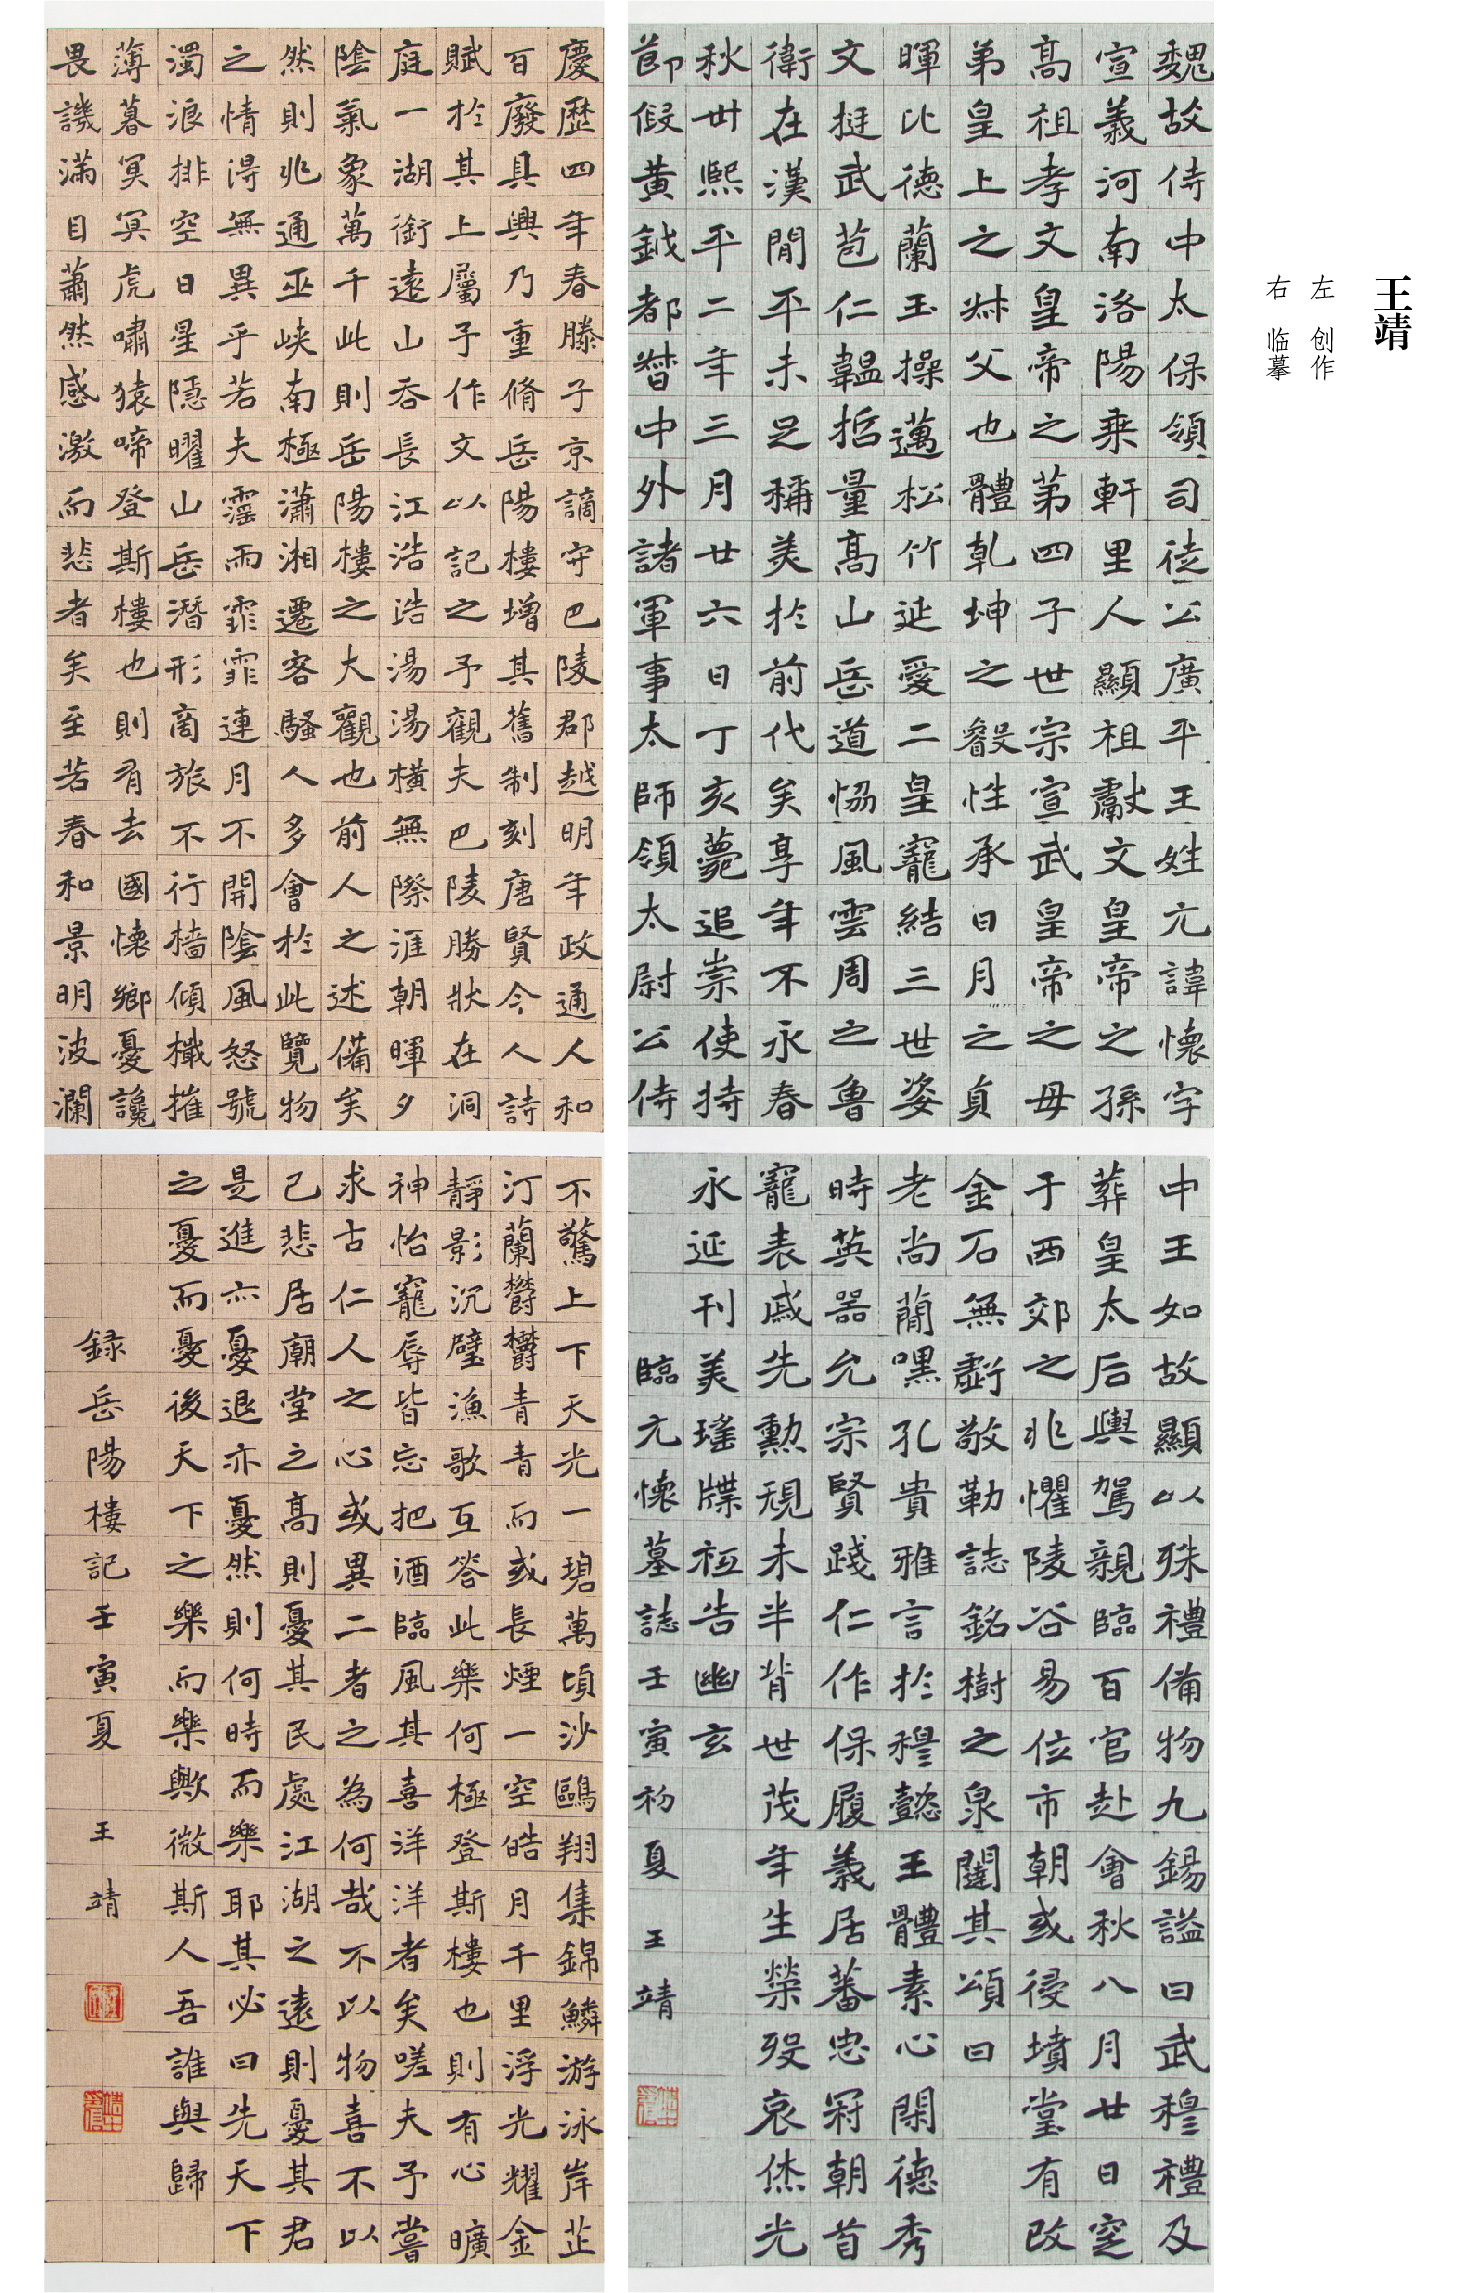 王靖
左 创作
右 临摹
魏故侍中太保領司徒公廣平王姓元諱懷字
宣義河南洛陽乘軒里人顯祖獻文皇帝之孫
高祖孝文皇帝之第四子世宗宣武皇帝之母
弟皇上之叔父也體乾坤之叡性承日月之貞
暉比德蘭玉操邁松竹延愛二皇寵結三世姿
文挺武苞仁韞哲量高山岳道協風雲周之魯
衛在漢閒平未足稱美於前代矣享年不永春
秋卅熙平二年三月廿六日丁亥薨追崇使持
節假黃鉞都督中外諸軍事太師領太尉公侍
中王如故顯以殊禮備物九錫謚曰武穆禮及
葬皇太后輿駕親臨百官赴會秋八月廿日窆
于西郊之兆懼陵谷易位市朝或侵墳堂有改
金石無虧敬勒誌銘樹之泉闥其頌曰
老尚簡嘿孔貴雅言於穆懿王體素心閑德秀
時英器允宗賢踐仁作保履義居蕃忠冠朝首
寵表戚先勳規未半背世茂年生榮歿哀休光
永延刊美瑤牒祗告幽玄
臨元懷墓誌壬寅初夏 王靖
慶歷四年春滕子京謫守巴陵郡越明年政通人和
百廢具興乃重脩岳陽樓增其舊制刻唐賢今人詩
賦於其上屬予作文以記之予觀夫巴陵勝狀在洞
庭一湖銜遠山吞長江浩浩湯湯橫無際涯朝暉夕
陰氣象萬千此則岳陽樓之大觀也前人之述備矣
然則北通巫峽南極瀟湘遷客騷人多會於此覽物
之情得無異乎若夫霪雨霏霏連月不開陰風怒號
濁浪排空日星隱曜山岳潛形商旅不行檣傾檝摧
薄暮冥冥虎嘯猿啼登斯樓也則有去國懷鄉憂讒
畏譏滿目蕭然感激而悲者矣至若春和景明波瀾
不驚上下天光一碧萬頃沙鷗翔集錦鱗游泳岸芷
汀蘭鬱鬱青青而或長煙一空皓月千里浮光耀金
靜影沉璧漁歌互答此樂何極登斯樓也則有心曠
神怡寵辱皆忘把酒臨風其喜洋洋者矣嗟夫予嘗
求古仁人之心或異二者之為何哉不以物喜不以
己悲居廟堂之高則憂其民處江湖之遠則憂其君
是進亦憂退亦憂然則何時而樂耶其必曰先天下
之憂而憂後天下之樂而樂歟微斯人吾誰與歸
錄岳陽樓記壬寅夏 王靖